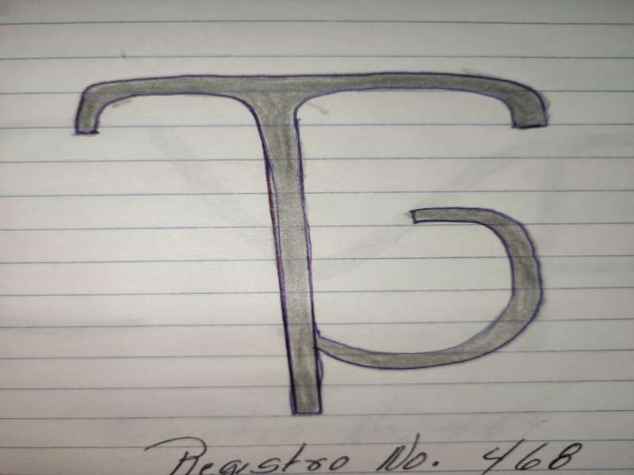 Registro No. 468